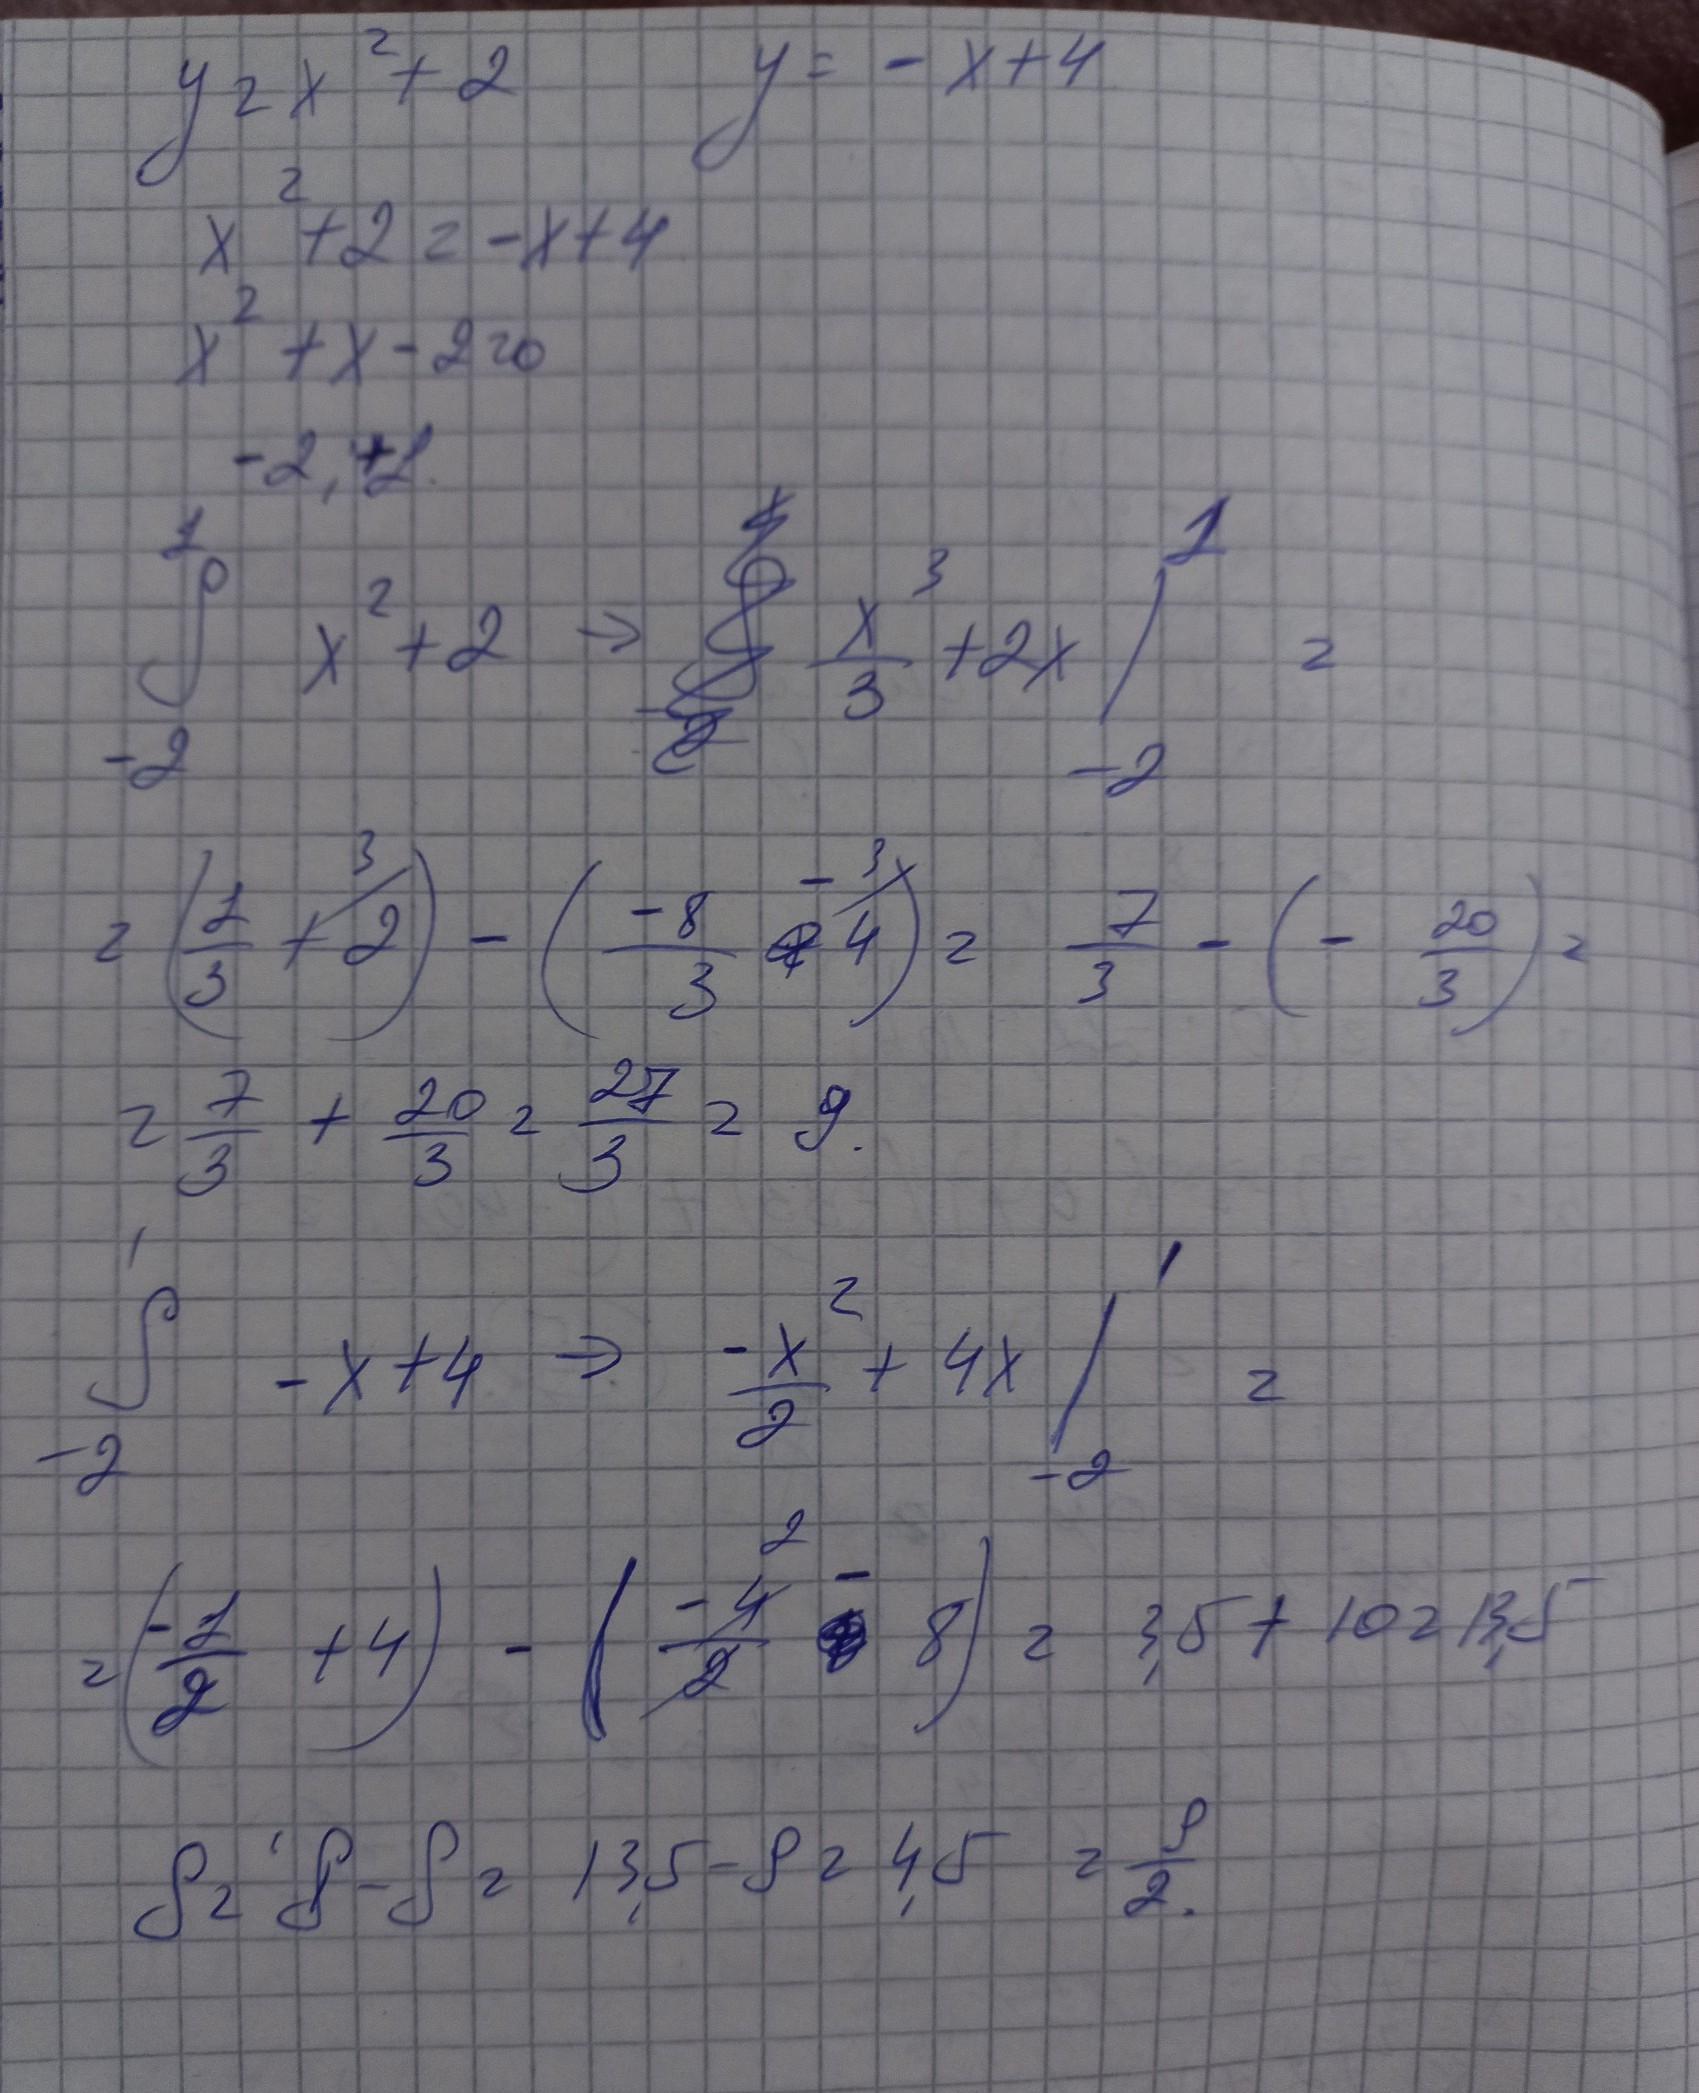 y = x² + 2 y = - x + 4
x² + 2 = - x + 4
x² + x - 2 = 0
-2, +1.
∫₋₂¹ x² + 2 → x³/3 + 2x |₋₂¹ =
= (1/3 + 2 /3) - (-8/3 - 4 /3) = 7/3 - (- 20/3) =
= 7/3 + 20/3 = 27/3 = 9.
∫₋₂¹ - x + 4 → -x²/2 + 4x |₋₂¹ =
= (-1/2 + 4) - (-4/2 /2 - 8) = 3,5 + 10 = 13,5
S = ∫ - ∫ = 13,5 - 9 = 4,5 = 9/2.